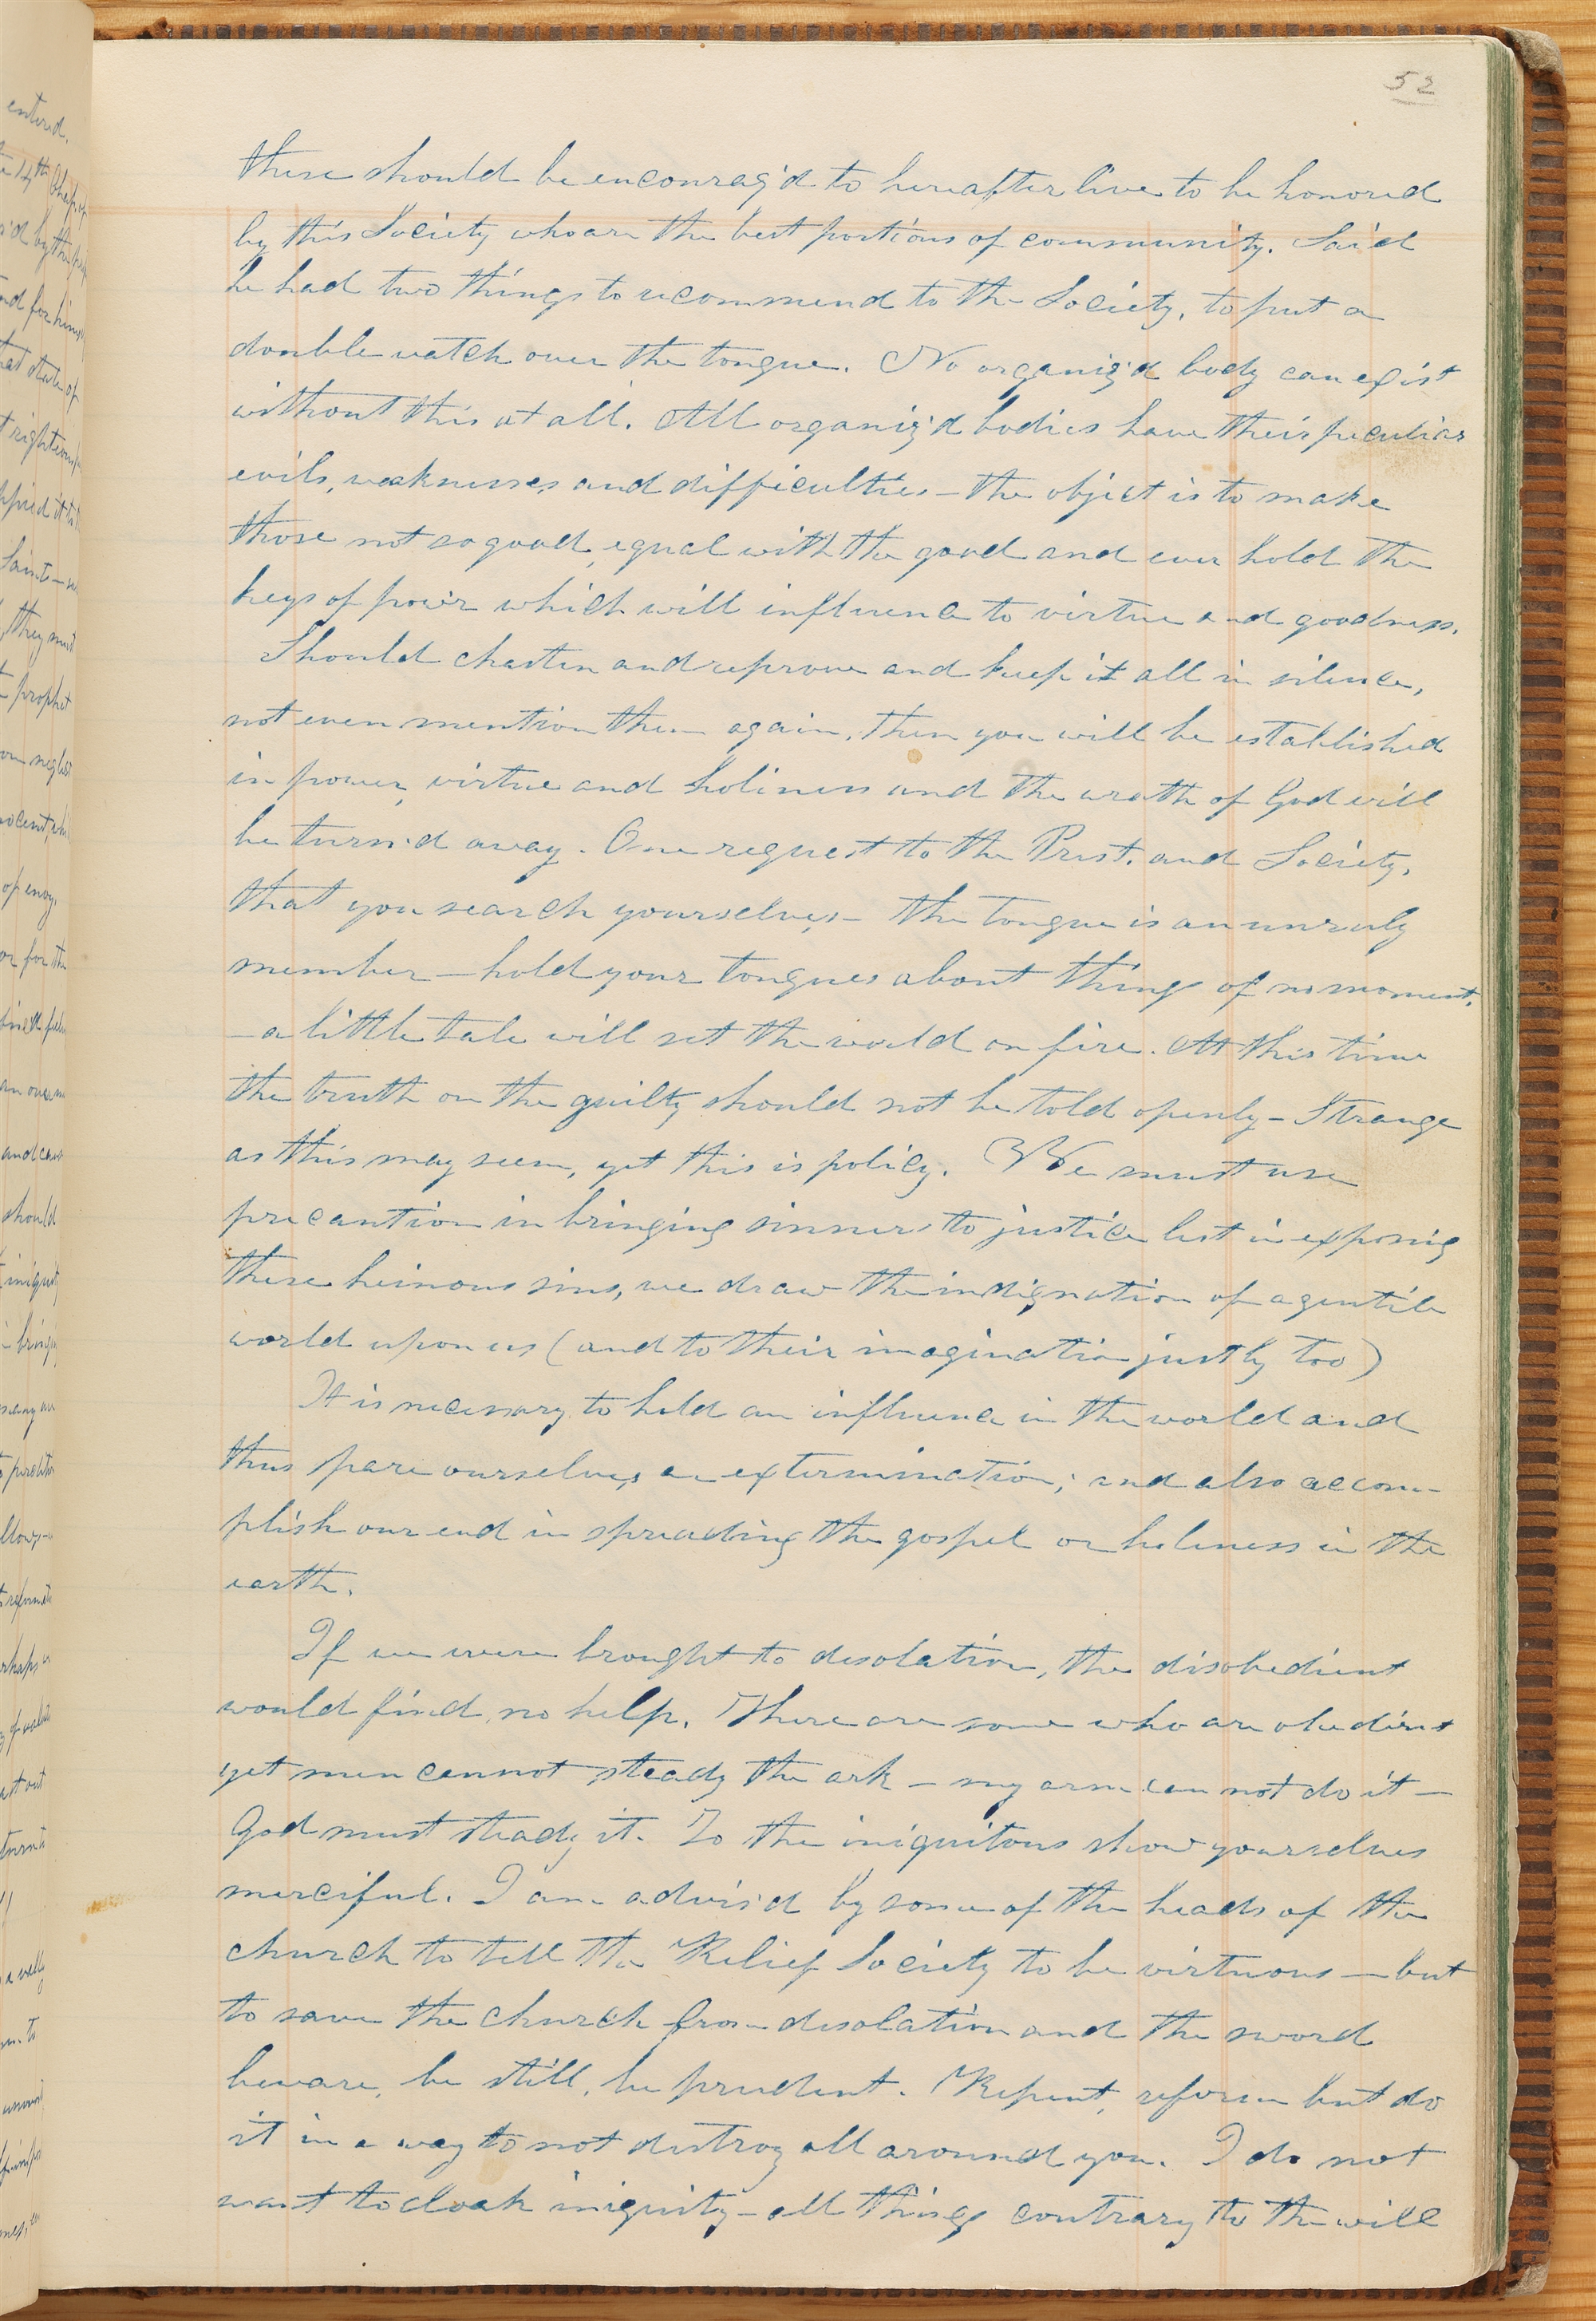 52
these should be encourag'd to hereafter live to be honored
by this Society who are the best portions of community. Said
he had two things to recommend to the Society, to put a
double watch over the tongue. No organiz'd body can exist
without this at all. All organiz'd bodies have their peculiar
evils, weaknesses and difficulties — the object is to make
those not so good, equal with the good and ever hold the
keys of power which will influence to virtue and goodness.
Should chasten and reprove and keep it all in silence,
not even mention them again, then you will be established
in power, virtue and holiness and the wrath of God will
be turn'd away. One request to the Prest. and Society,
that you search yourselves — the tongue is an unruly
member — hold your tongues about things of no moment,
— a little tale will set the world on fire. At this time
the truth on the guilty should not be told openly — Strange
as this may seem, yet this is policy. We must use
precaution in bringing sinners to justice lest in exposing
these heinous sins, we draw the indignation of a gentile
world upon us (and to their imagination justly too)
It is necessary to hold an influence in the world and
thus spare ourselves an extermination; and also accom-
plish our end in spreading the gospel or holiness in the
earth.
If we were brought to desolation, the disobedient
would find no help. There are some who are obedient
yet men cannot steady the ark — my arm can not do it —
God must steady it. To the iniquitous show yourselves
merciful. I am advis'd by some of the heads of the
church to tell the Relief Society to be virtuous — but
to save the church from desolation and the sword
beware, be still, be prudent. Repent, reform but do
it in a way to not destroy all around you. I do not
want to cloak iniquity — all things contrary to the will